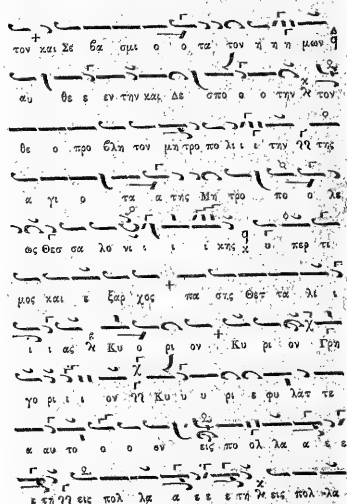 τον και Σε βα σμι ο ο τα τον η η η μων
αυ θε ε εν την και Δε σπο ο ο την τον
θε ο προ βλη τον μη τρο πο λι ι ι την της
α γι ο τα α της Μη τρο πο ο λε
ως Θεσ σα λο νι ι ι ι ι κης υ περ τι
μος και ε ξαρ χος πα σης Θετ τα λι ι
ι ι ας Κυ ο ρι ον Κυ ρι ον Γρη
γο ρι ι ι ον Κυ υ υ ρι ε φυ λατ τε
ε αυ το ο ο ον εις πο ολ λα α ε ε
ε τη εις πολ λα α ε ε ε τη εις πολ λα